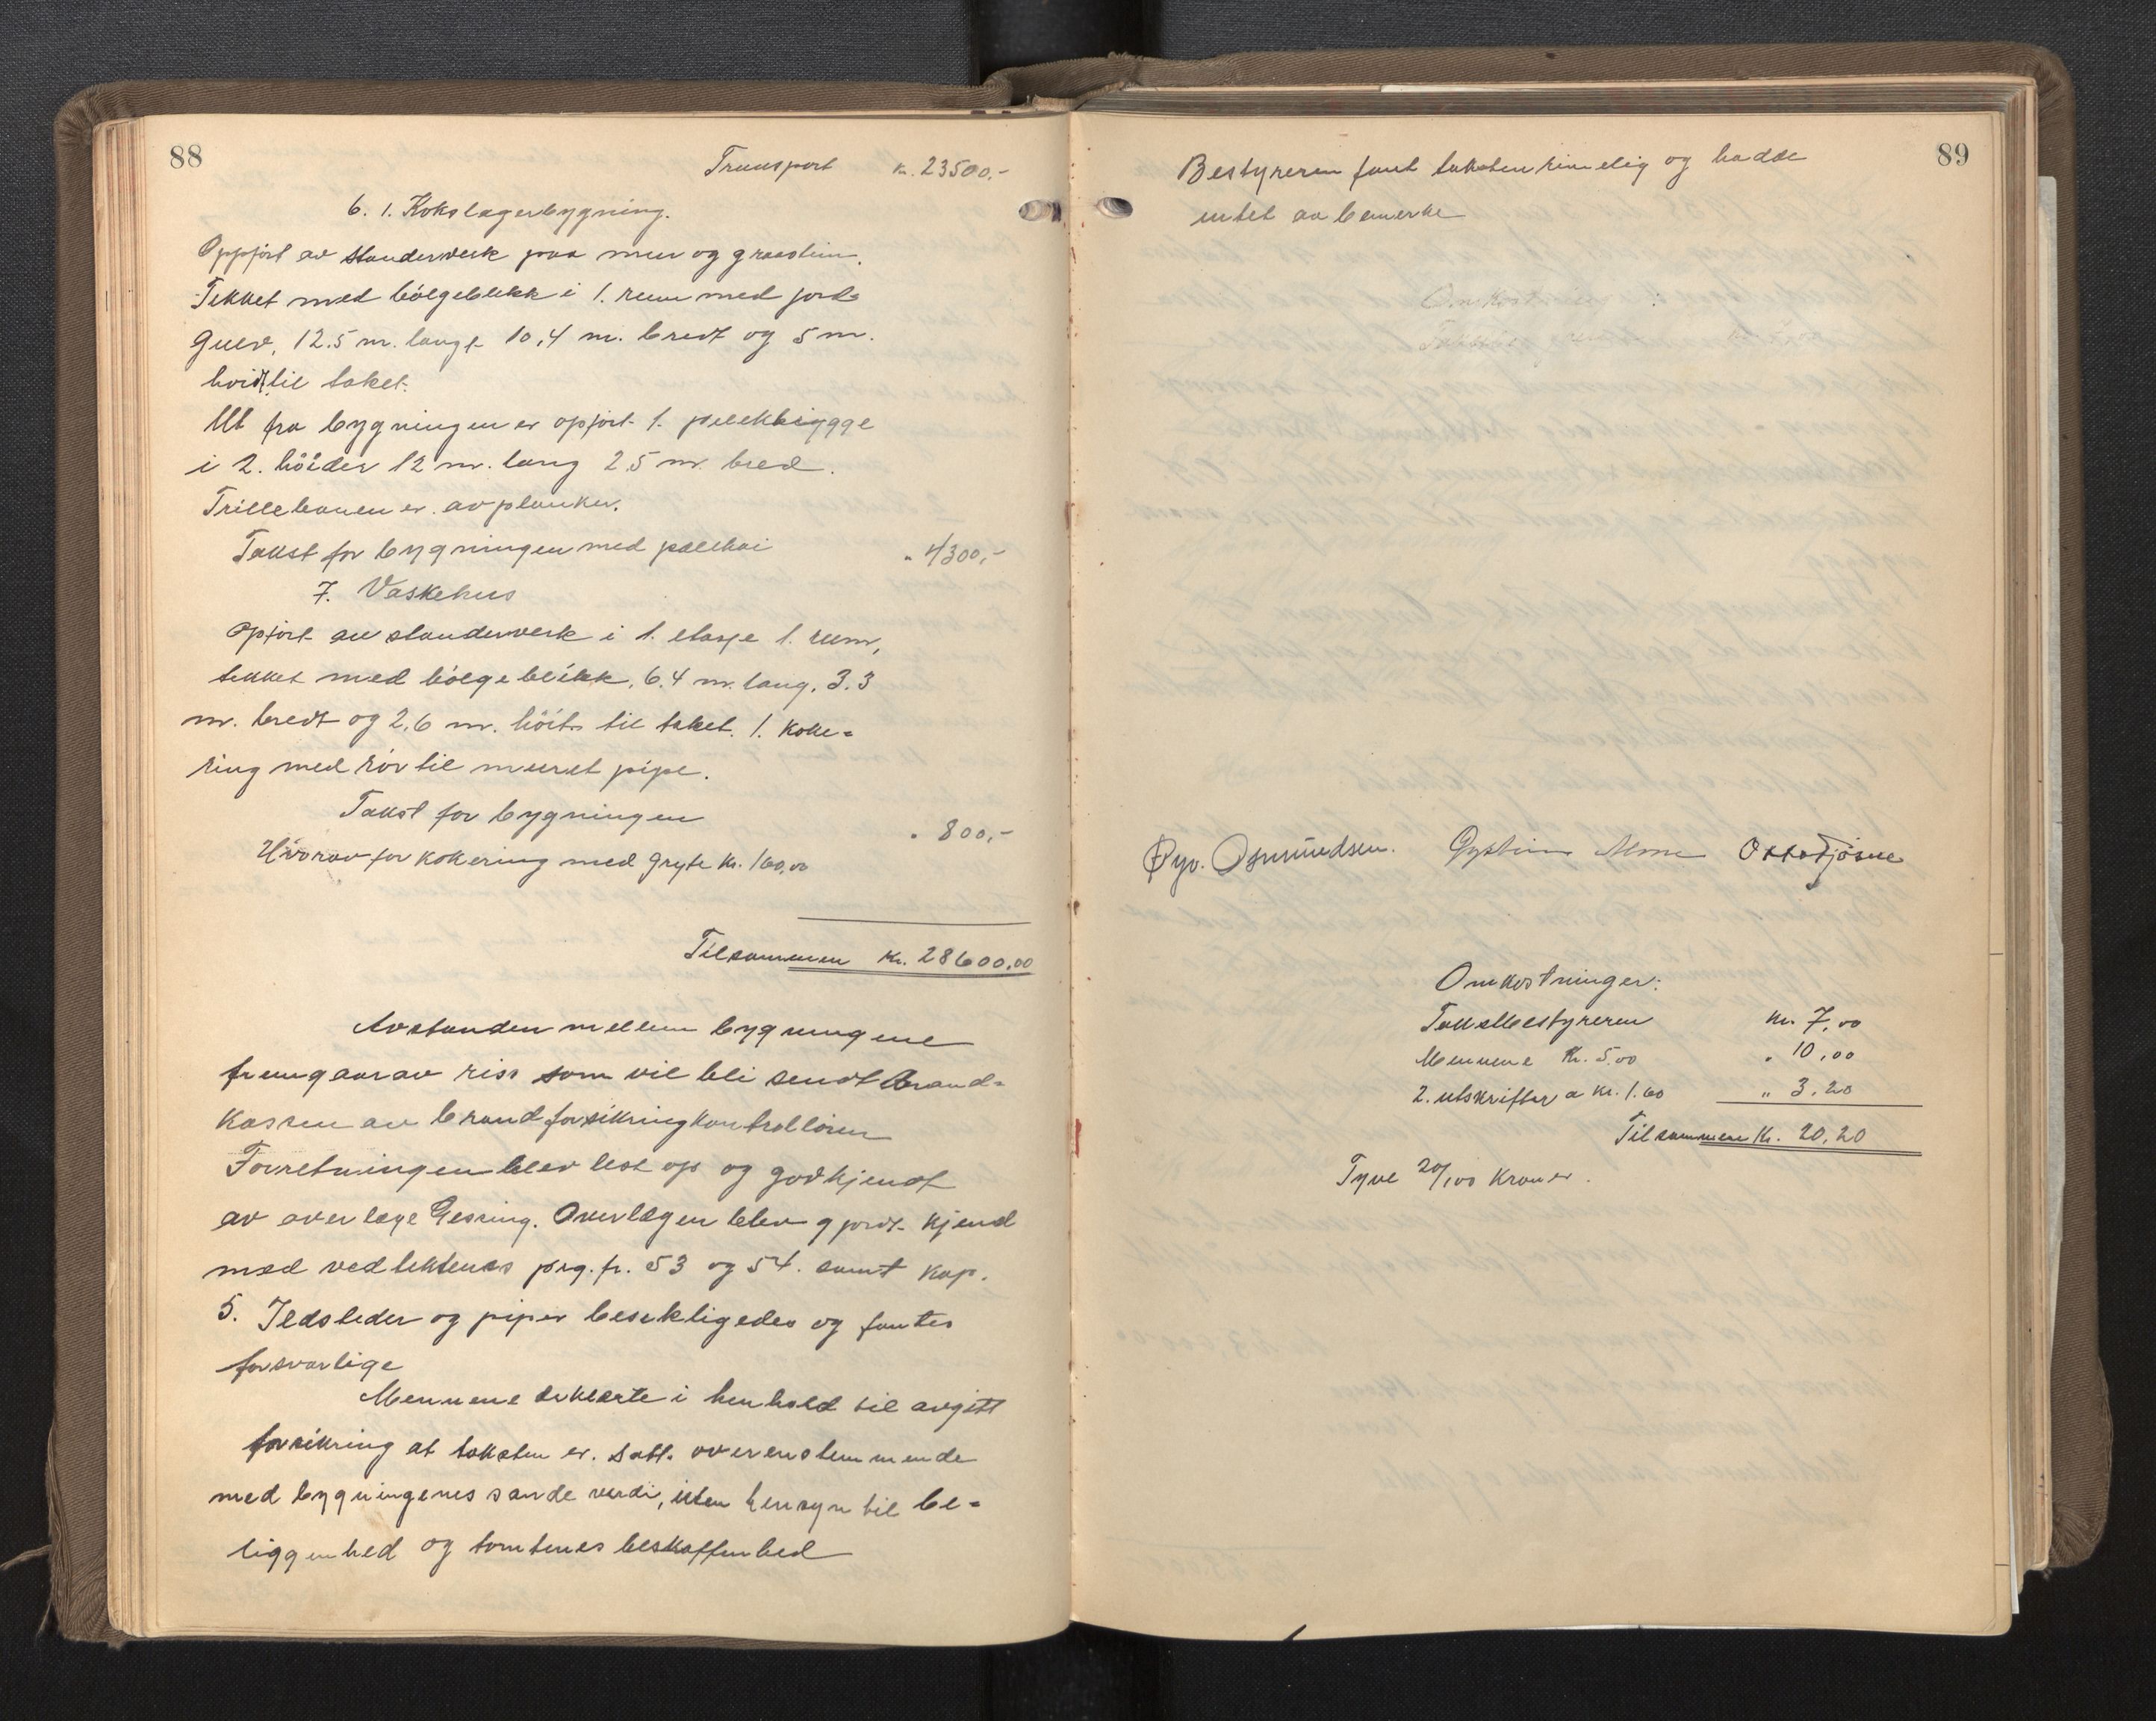 88
Transport kr. 23500.-
6. 1. Kokslagerbygning.
Oppført av standerverk paa mur og graastein.
Tekket med bølgeblikk i 1. rum med jord-
gulv, 12.5 m. langt 10,4 m. bredt og 5 m.
høidt til taket.
Ut fra bygningen er opført 1. pælebrygge
i 2. høider 12 m. lang 2.5 m. bred.
Trillebanen er av planker.
Takst for bygningen med pælekai " 4300,-
7. Vaskehus
Opført av standerverk i 1. etasje 1. rum,
tekket med bølgeblikk, 6.4 m. lang, 3.3
m. bredt og 2,6 m. höit til taket. 1. koke-
ring med rör til muret pipe.
Takst for bygningen " 800,-
Hvorav for kokering med gryte kr. 160,00
Tilsammen kr. 28600,00
Avstanden mellem bygningene
fremgaar av riss som vil bli sendt Brand-
kassen av brandforsikringkontrolløren
Forretningen blev lest op og godkjendt
av overlæge Gessing. Overlægen blev gjordt kjend
med vedtektenes prg.fr. 53 og 54. samt kap.
5. Ildsteder og piper besiktigedes og fantes
forsvarlige
Mennene erklærte i henhold til avgitt
forsikring at taksten er satt overenstemmende
med bygningenes sande verdi, uten hensyn til be-
liggenhed og tomtenes beskaffenhed
89
Bestyreren fant taksten rimelig og hadde
intet aa bemerke
Omkostninger:
Øyv. Osmundsen. Gystein Alme Otto Fjösne
Omkostninger:
Takstbestyreren kr. 7,00
Mennene kr. 5.00 " 10,00
2. utskrifter a kr. 1.60 " 3,20
Tilsammen kr. 20,20
Tyve 20/100 kroner.